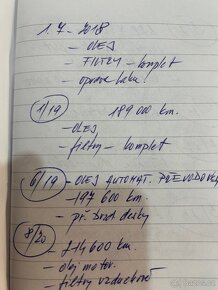 1.7-2018
- OLEJ
- FILTRY - komplet
- oprava laku!
1/19
189 000 km.
- OLEJ
- filtry - komplet
6/19 - OLEJ AUTOMAT. PŘEVODOV
- 197 600 km.
- př. brzd. desky
8/20
214 600 km.
- olej motor.
- filtry vzduchové